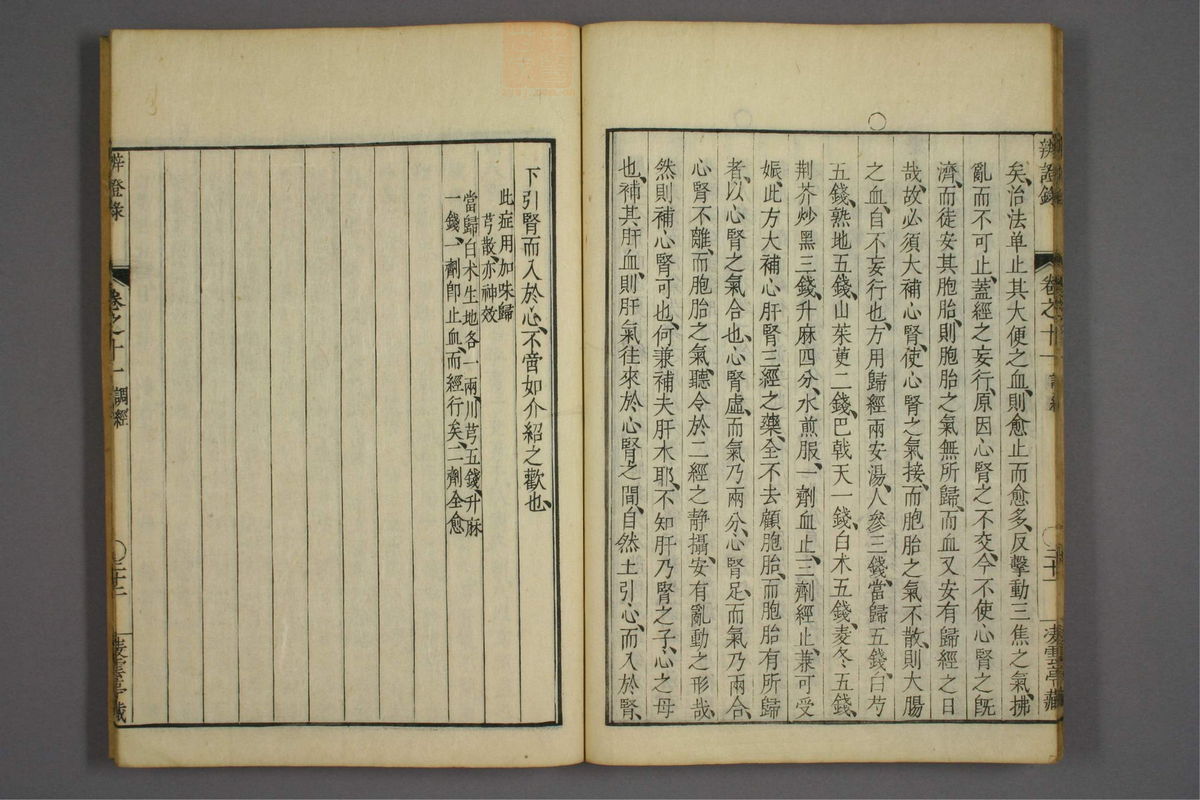 辨證錄 卷之十一
矣、治法单止其大便之血、則愈止而愈多、反擊動三焦之氣、拂
亂而不可止、蓋經之妄行、原因心腎之不交、今不使心腎之旣
濟、而徒安其胞胎、則胞胎之氣無所歸、而血又安有歸經之日
哉、故必須大補心腎、使心腎之氣接、而胞胎之氣不散、則大腸
之血、自不妄行也、方用歸經兩安湯、人參三錢、當歸五錢、白芍
五錢、熟地五錢、山茱萸二錢、巴戟天一錢、白术五錢、麦冬五錢、
荆芥炒黑三錢、升麻四分、水煎服、一劑血止、三劑經止、兼可受
娠、此方大補心肝腎三經之藥、全不去顧胞胎、而胞胎有所歸
者、以心腎之氣合也、心腎虛、而氣乃兩分、心腎足、而氣乃兩合、
心腎不離、而胞胎之氣、聽令於二經之静攝、安有亂動之形哉、
然則補心腎可也、何兼補夫肝木耶、不知肝乃腎之子、心之母
也、補其肝血、則肝氣往來於心腎之間、自然上引心、而入於腎、
下引腎而入於心、不啻如介紹之歡也、
此症用加味歸
芎散、亦神效
當歸白术生地各一兩、川芎五錢、升麻
一錢、一劑卽止血、而經行矣、二劑全愈
辨證錄 卷之十一 調經